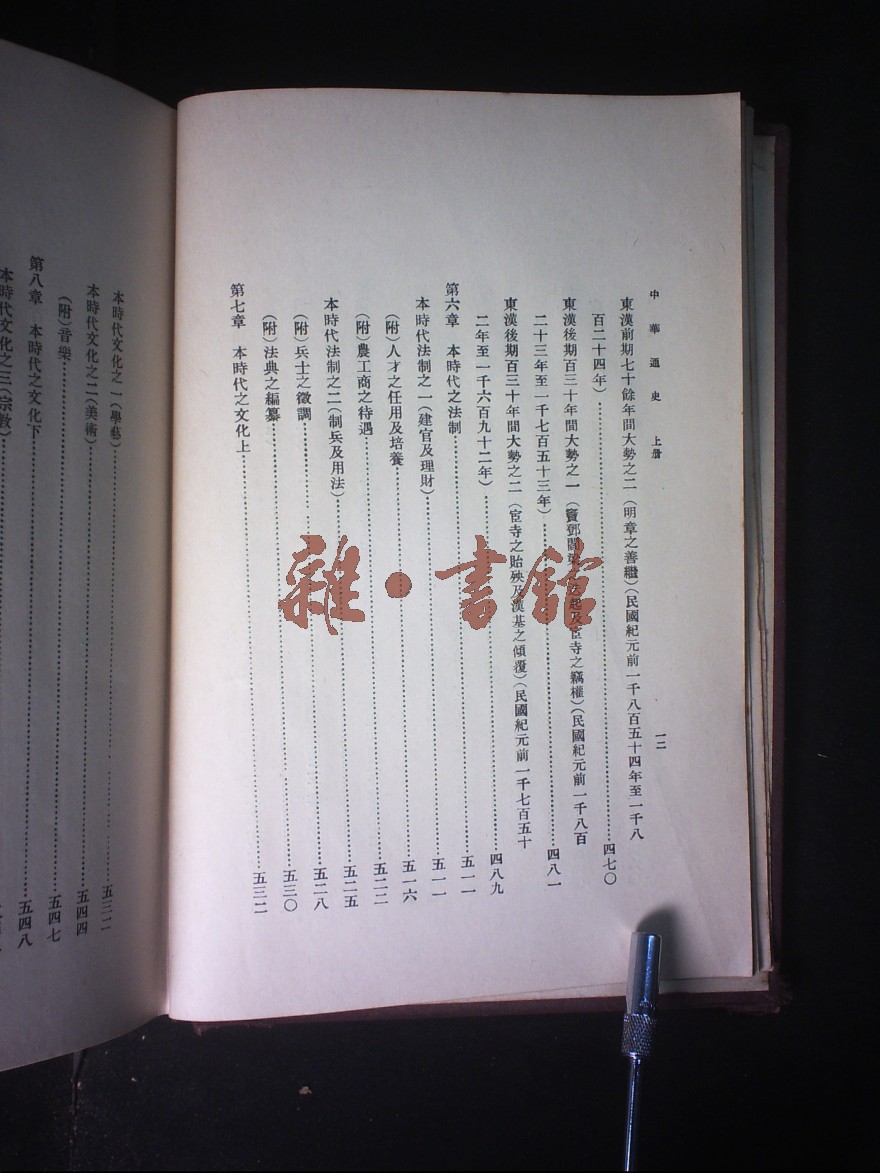 中華通史 上册
一二
東漢前期七十餘年間大勢之二(明章之善繼)(民國紀元前一千八百五十四年至一千八
百二十四年)……四七〇
東漢後期百三十年間大勢之一(竇鄧閻梁之迭起及宦寺之竊權)(民國紀元前一千八百
二十三年至一千七百五十三年)……四八一
東漢後期百三十年間大勢之二(宦寺之貽殃及漢基之傾覆)(民國紀元前一千七百五十
二年至一千六百九十二年)……四八九
第六章 本時代之法制……五一一
本時代法制之一(建官及理財)……五一一
(附)人才之任用及培養……五一六
(附)農工商之待遇……五二二
本時代法制之二(制兵及用法)……五二五
(附)兵士之徵調……五二八
(附)法典之編纂……五三〇
第七章 本時代之文化上……五三二
本時代文化之一(學藝)……五三二
本時代文化之二(美術)……五四四
(附)音樂……五四七
第八章 本時代之文化下……五四八
本時代文化之三(宗教)
雜·書館